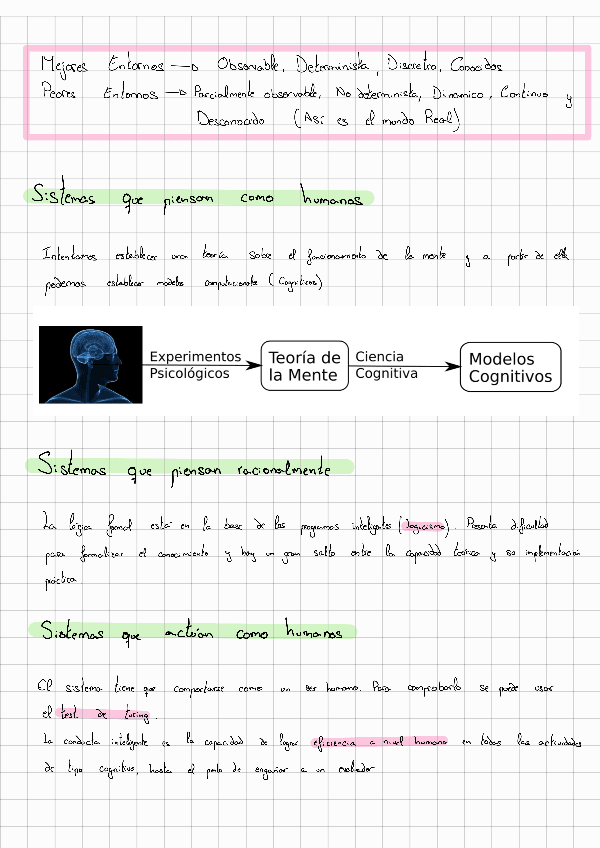 Mejores Entornos → Observable, Determinista, Discretro, Conocidos
Peores Entornos → Parcialmente observable, No determinista, Dinamico, Continuo y
Desconocido (Así es el mundo Real)
Sistemas que piensan como humanos
Intentamos establecer una teoría sobre el funcionamiento de la mente y a partir de ella
podemos establecer modelos computacionales (Cognitivos)
Experimentos
Psicológicos
Teoría de
la Mente
Ciencia
Cognitiva
Modelos
Cognitivos
Sistemas que piensan racionalmente
La lógica formal está en la base de los programas inteligentes (logicismo). Presenta dificultad
para formalizar el conocimiento y hay un gran salto entre la capacidad teórica y su implementación
práctica
Sistemas que actúan como humanos
El sistema tiene que comportarse como un ser humano. Para comprobarlo se puede usar
el test de turing.
La conducta inteligente es la capacidad de lograr eficiencia a nivel humano en todas las actividades
de tipo cognitivo, hasta el punto de engañar a un evaluador